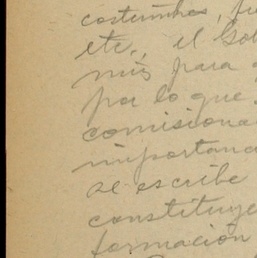 costumbres,
etc., el Go
mis para
por lo que
comisiona
importanc
se escribe
constituye
formación